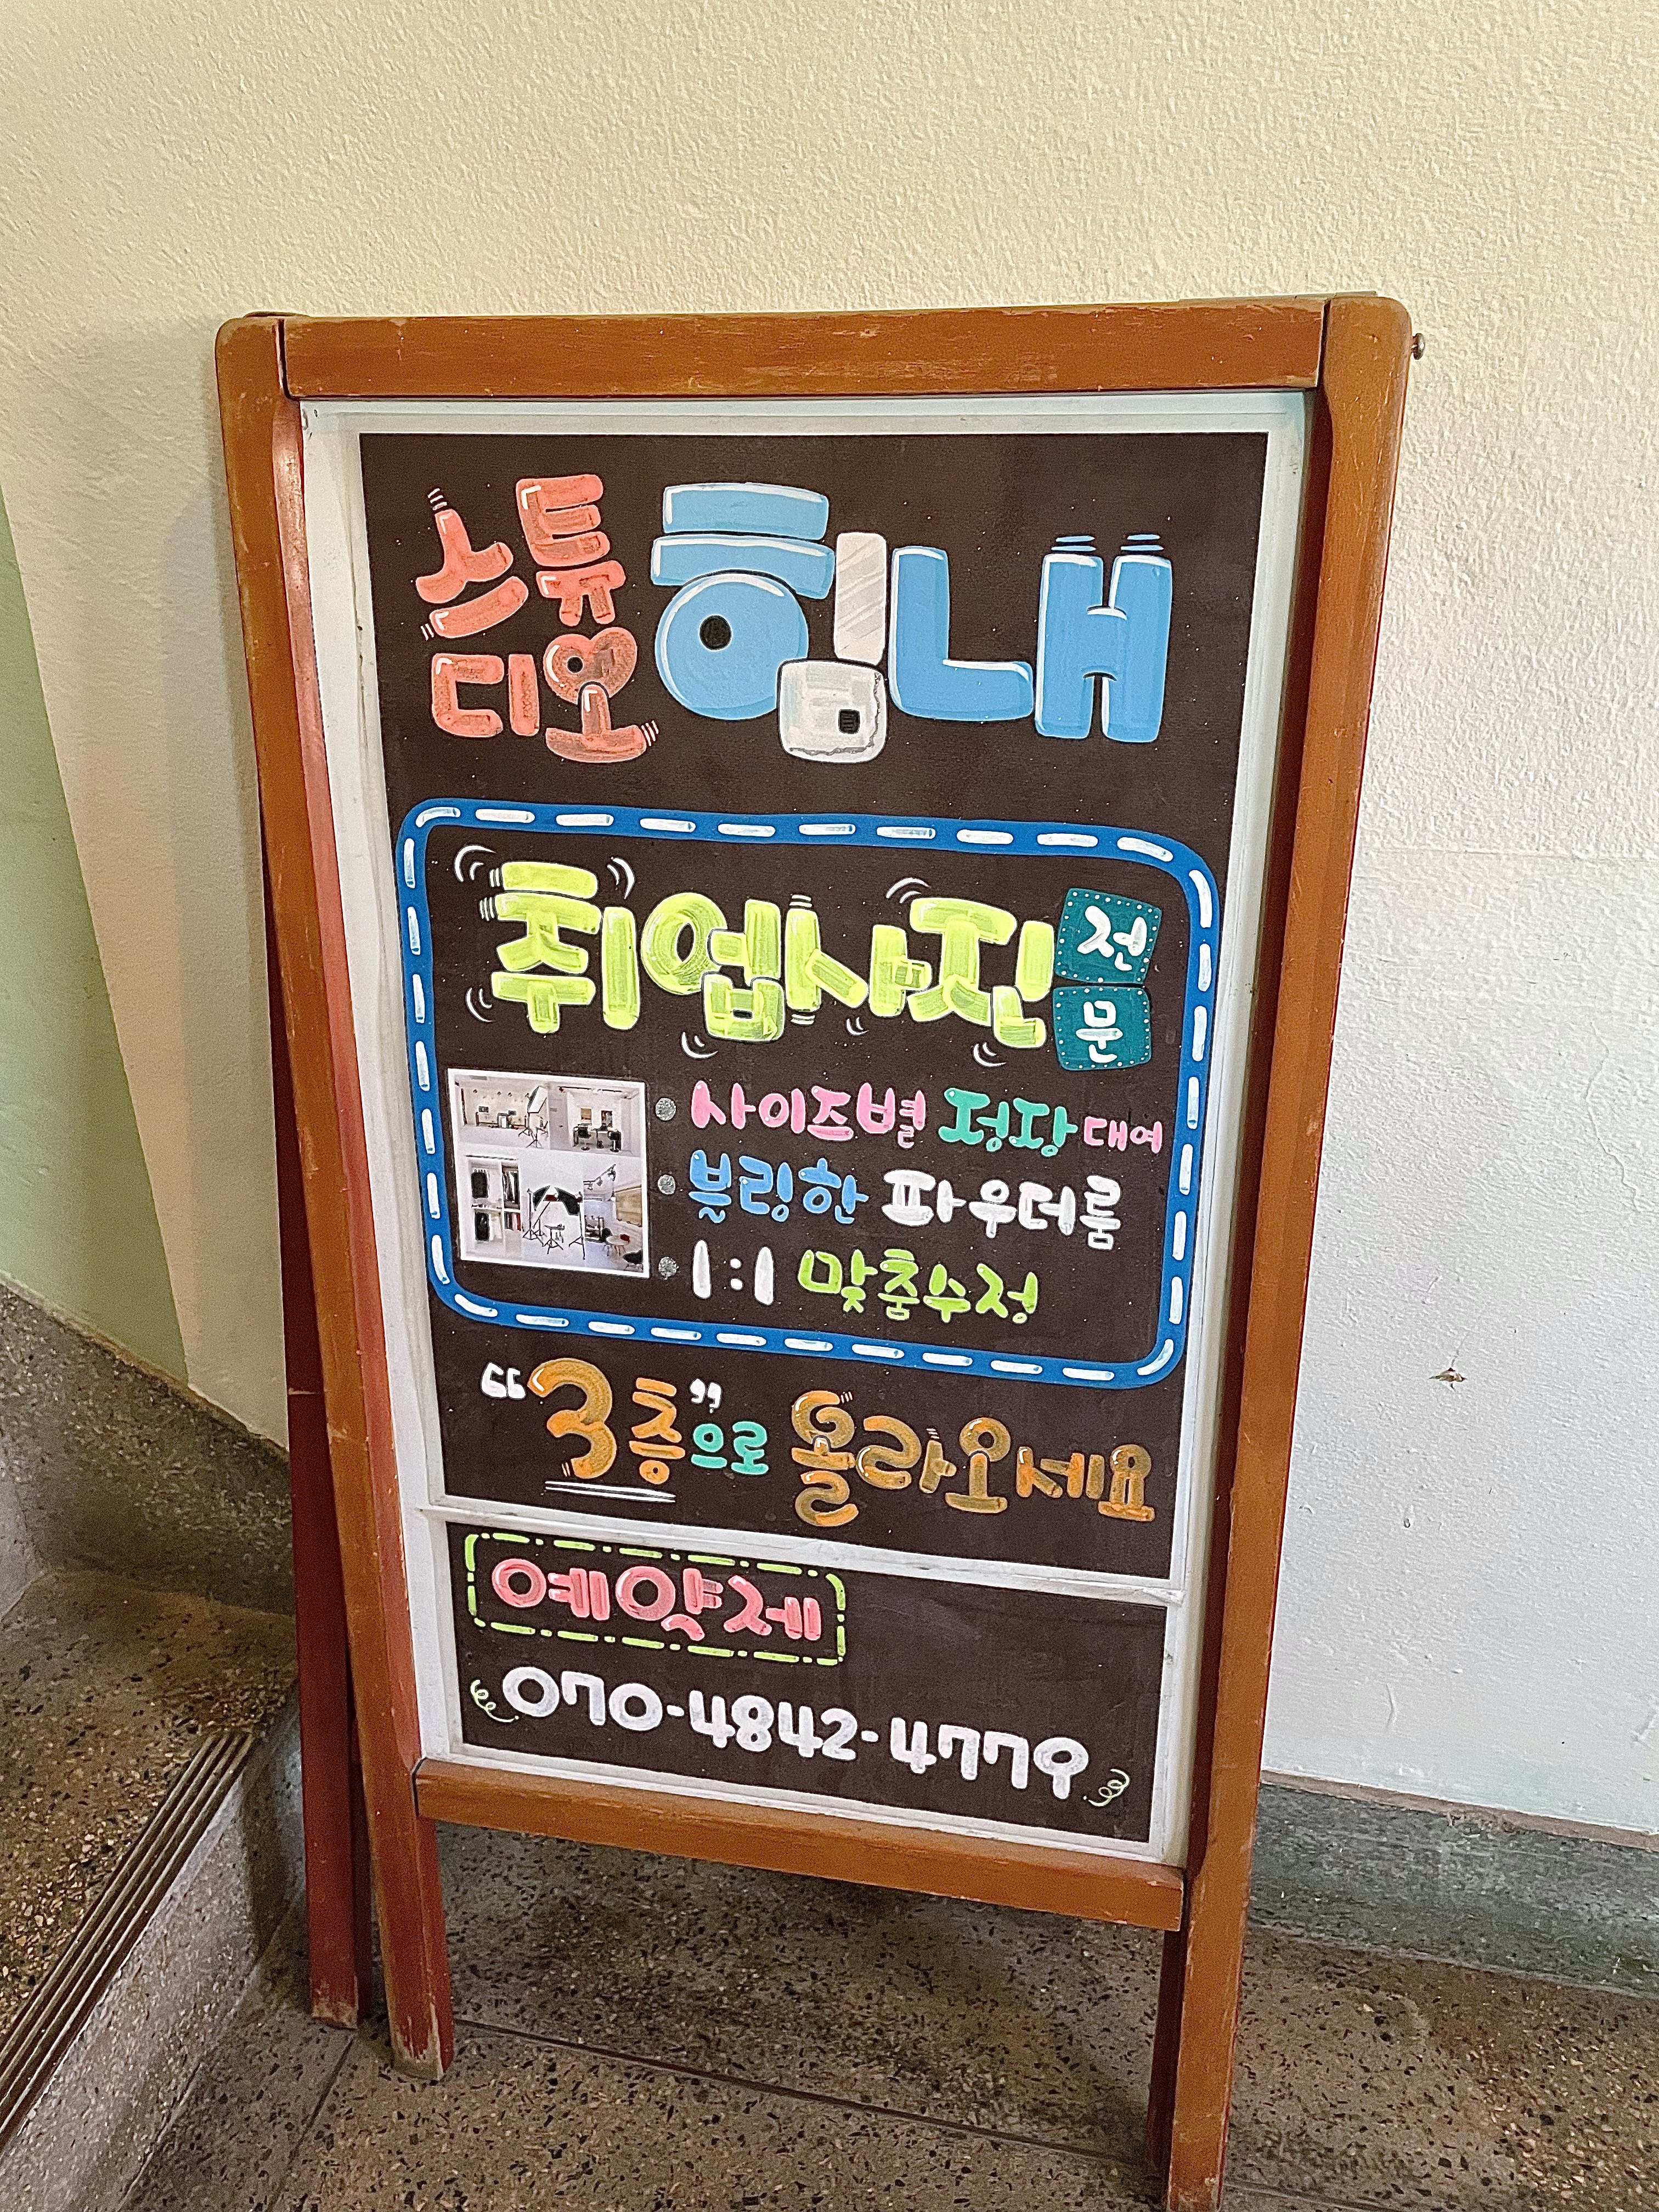 스튜디오 힘내
취업사진 전문
사이즈별 정장 대여
블링한 파우더룸
1:1 맞춤수정
“3층”으로 올라오세요
예약제
070-4842-4779